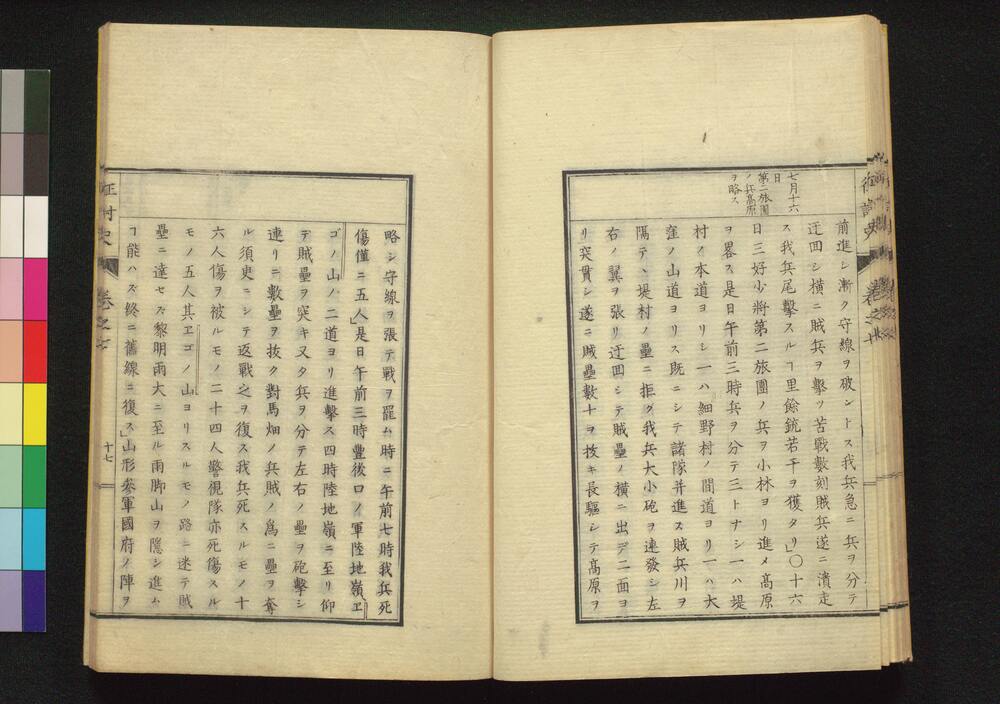 七月十六
日
第二旅團
ノ兵高原
ヲ略ス
前進シ漸ク守線ヲ破ントス我兵急ニ兵ヲ分テ
迂回シ横ニ賊兵ヲ擊ツ苦戰數刻賊兵遂ニ潰走
ス我兵尾擊スルヿ里餘銃若干ヲ獲タリ」〇十六
日三好少將第二旅團ノ兵ヲ小林ヨリ進メ高原
ヲ畧ス是日午前三時兵ヲ分テ三トナシ一ハ堤
村ノ本道ヨリシ一ハ細野村ノ間道ヨリ一ハ大
窪ノ山道ヨリス既ニシテ諸隊并進ス賊兵川ヲ
隔テヽ堤村ノ壘ニ拒グ我兵大小砲ヲ連發シ左
右ノ翼ヲ張リ迂回シテ賊壘ノ横ニ出デ二面ヨ
リ突貫シ遂ニ賊壘數十ヲ抜キ長驅シテ高原ヲ
略シ守線ヲ張テ戰ヲ罷ム時ニ午前七時我兵死
傷僅ニ五人」是日午前三時豐後口ノ軍陸地嶺ヱ
ゴノ山ノ二道ヨリ進擊ス四時陸地嶺ニ至リ仰
テ賊壘ヲ突キ又タ兵ヲ分テ左右ノ壘ヲ砲擊シ
連リニ數壘ヲ抜ク對馬畑ノ兵賊ノ爲ニ壘ヲ奪
ル須臾ニシテ返戰之ヲ復ス我兵死スルモノ十
六人傷ヲ被ルモノ二十四人警視隊亦死傷スル
モノ五人其ヱゴノ山ヨリスルモノ路ニ迷テ賊
壘ニ達セス黎明雨大ニ至ル雨脚山ヲ隱シ進ム
ヿ能ハズ終ニ舊線ニ復ス」山形參軍國府ノ陣ヲ
征討史
卷之七
十七